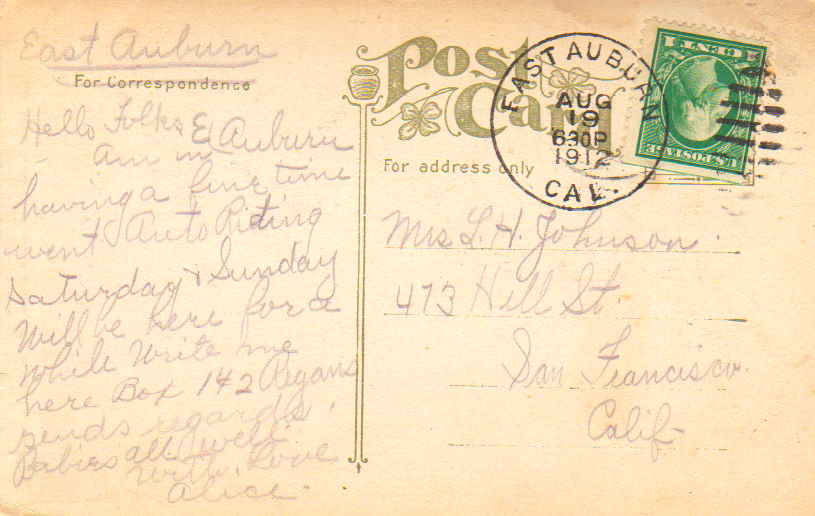 East Auburn
For Correspondence
Hello Folks E Auburn
am in
having a fine time
went Auto Riding
Saturday & Sunday
Will be here for a
while write me
here Box 142 Regans
sends regards.
Babies all well.
with Love
Alice.
Post
Card
For address only
EAST AUBURN
AUG
19
630P
1912
CAL.
U.S. POSTAGE
1 CENT 1
Mrs L. H. Johnson.
473 Hill St
San Francisco.
Calif